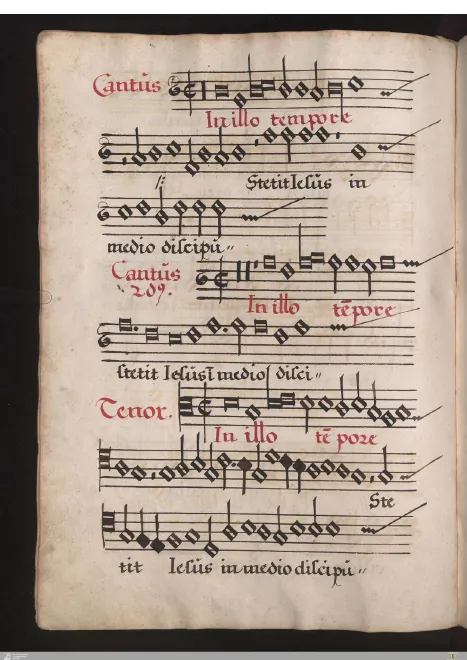 Cantus
In illo tempore
Stetit Iesus in
medio discipu„
Cantus
2dꝰ.
In illo tẽpore
stetit Iesus ĩ medio disci„
Tenor.
In illo tẽ pore
Ste
tit Iesus in medio discipu„